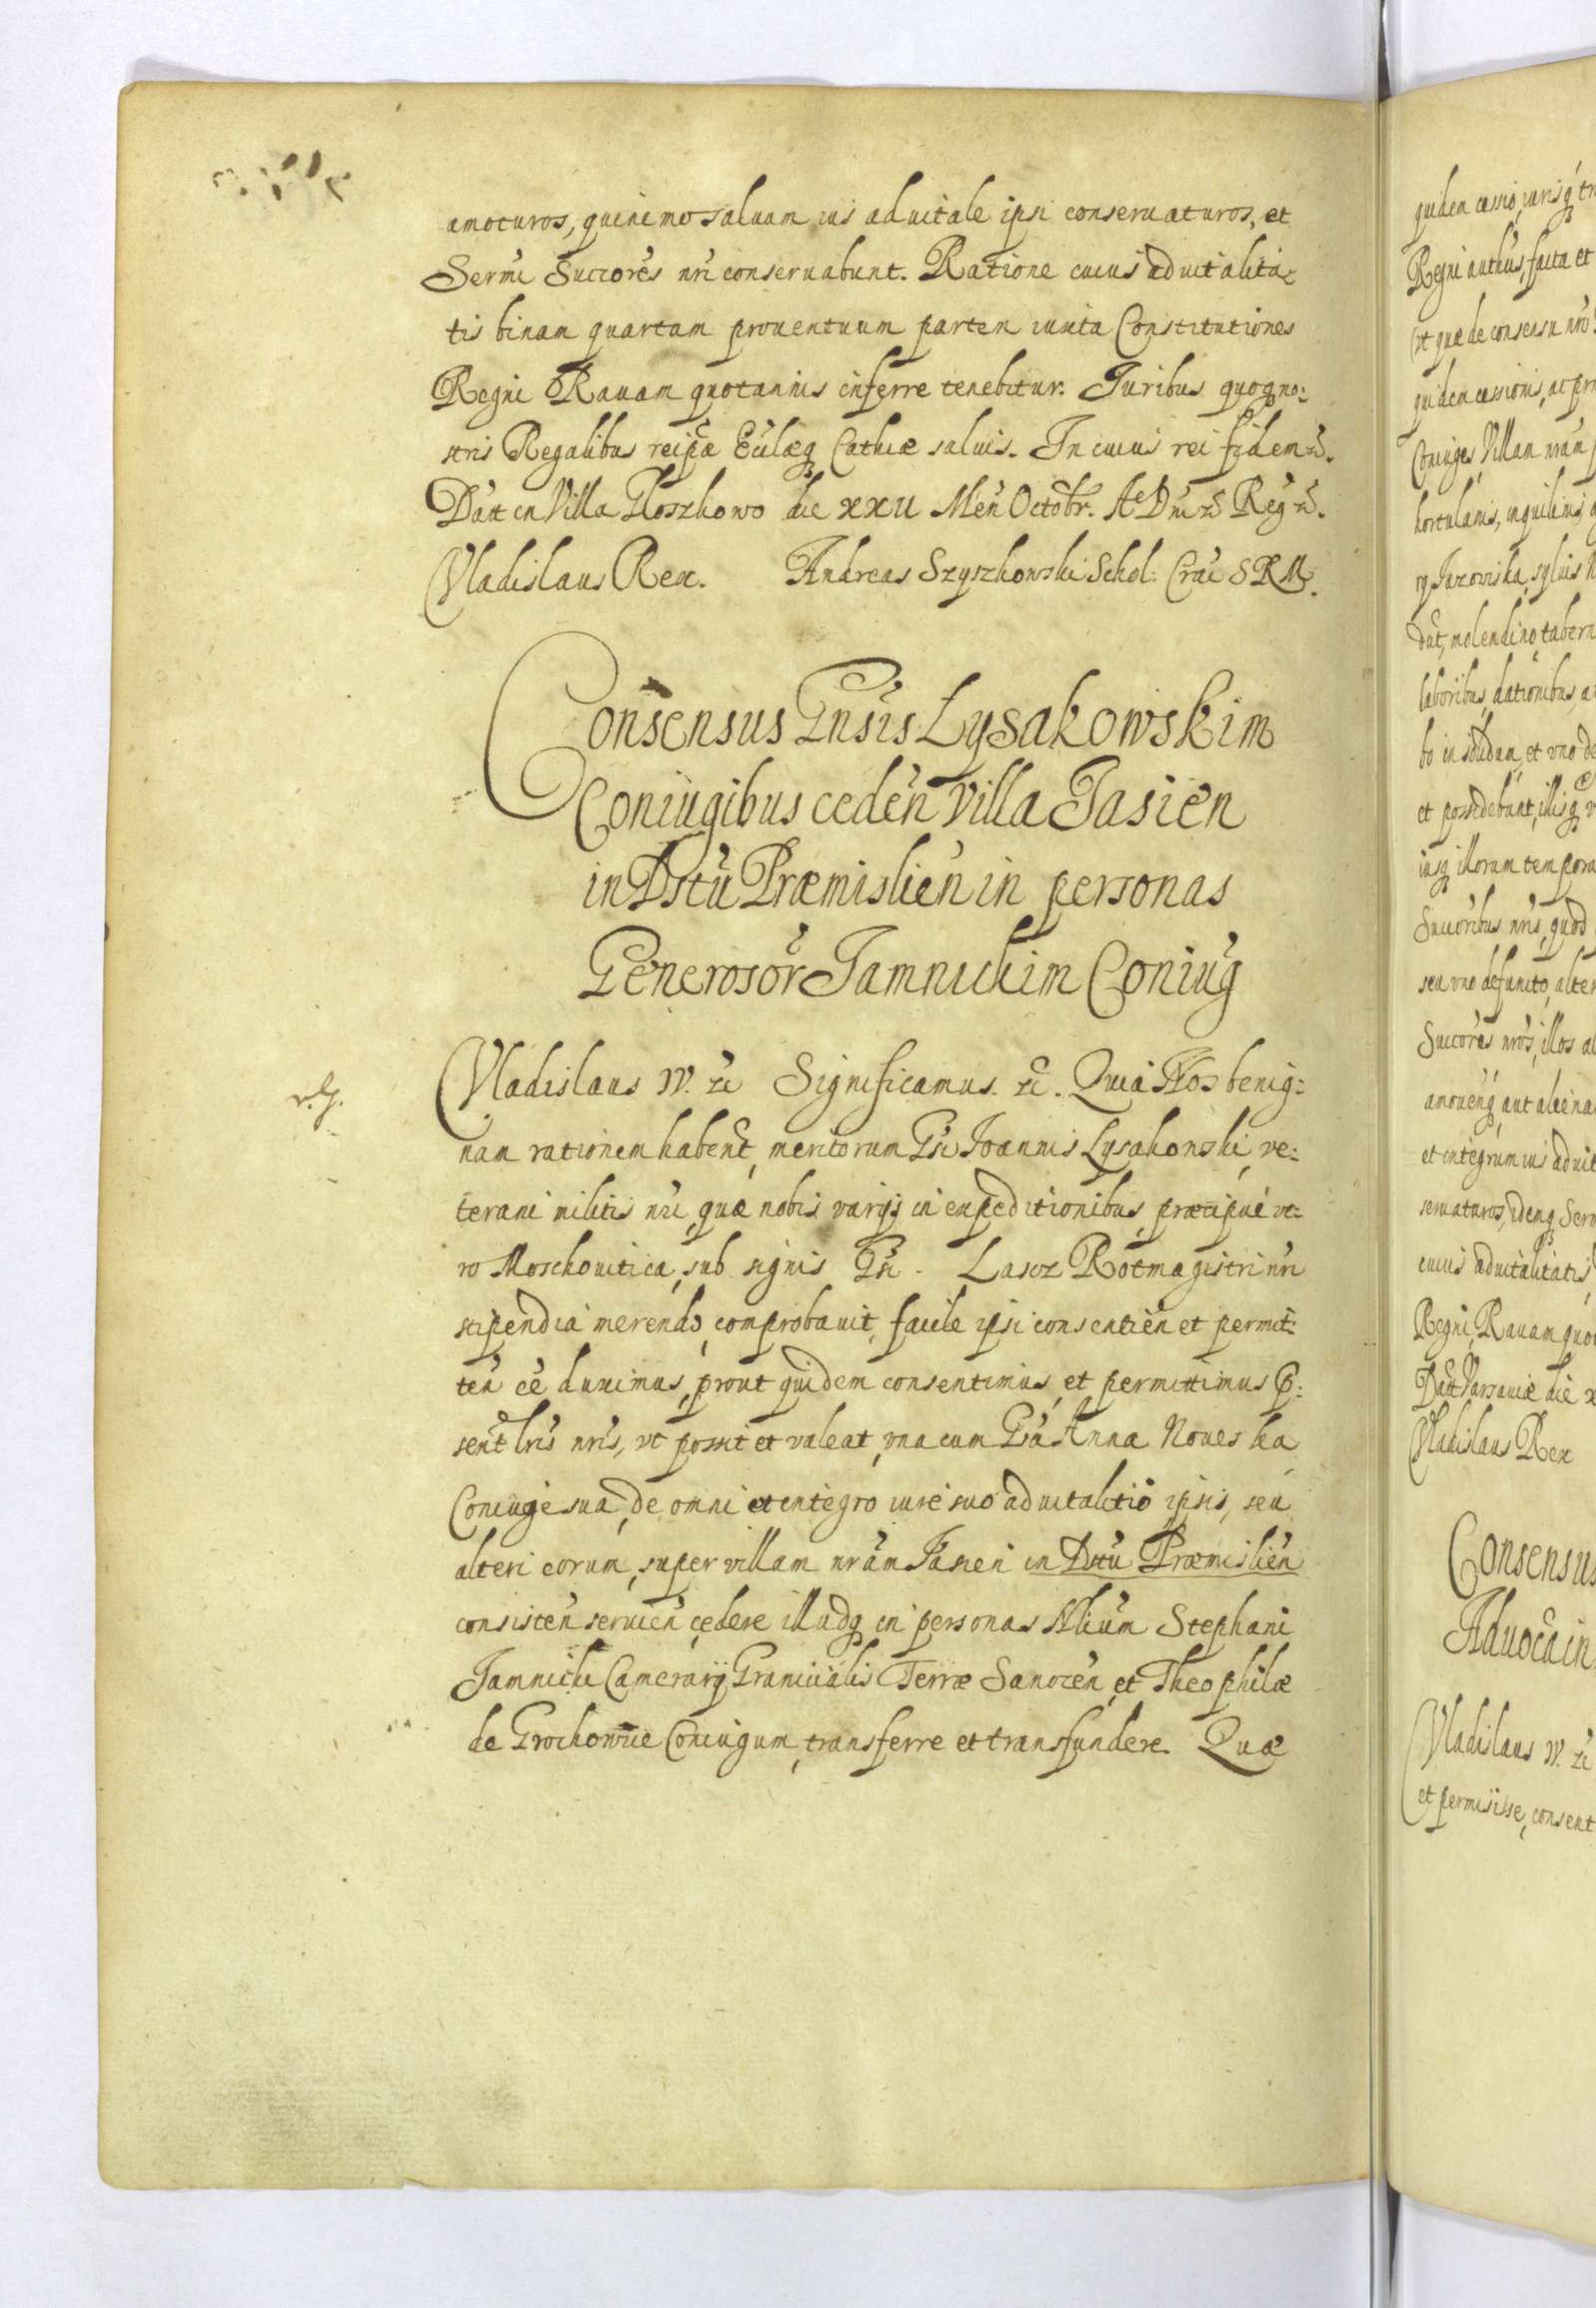 amoturos, quinimo saluam ius aduitale ipsi conseruaturos, et
Sermi Succores nri conseruabunt. Ratione cuius aduitalita-
tis binam quartam prouentuum partem iuxta Constitutiones
Regni Rauam quotannis inferre tenebitur. Iuribus quoq no:
stris Regalibus reipcæ Eccłæq Cathcæ saluis. In cuius rei fidem ec.
Datt in Villa Noszkowo die XXII Men Octobr. A D ni ec Reg ec.
Vladislaus Rex. Andreas Szyszkowski Schol: Crac S R M.
Consensus Gnsis Lysakowskim
Coniugibus ceden Villa Jasien
in Dstu Præmislien in personas
Generosor Jamnickim Coniug
Vladislaus IV. ec Significamus. ec. Quia Nos benig:
nam rationem habent, meritorum Gsi Ioannis Lysakowski, ve:
terani militis nri, quæ nobis varijs in expeditionibus, præcipue ve:
ro Moschouitica, sub signis Gsi. Lascz Rotmagistri nri
stipendia merendo, comprobauit, facile ipsi consentien et permit:
ten ee duximus, prout quidem consentimus, et permittimus p:
sent lris nris, vt possit et valeat, vna cum Gsa Anna Noueska
Coniuge sua, de omni et integro iure suo aduitalitio ipsis, seu
alteri eorum, super villam nram Jasien in Dstu Præmislien
consisten seruien, cedere illudq in personas Nlium Stephani
Jamnicki Camerarij Granicialis Terræ Sanocen, et Theophilæ
de Grochowce Coniugum, transferre et transfundere. Quæ
quidem cessio, iurisq
Regni
vt quæ de consensu nro
quidem cessionis, ac
Coniuges, Villam nram
hortulanis, inquilinis,
syluis
molendino,
laboribus, dationibus,
bo in solidum, et vno de
et possidebunt,
illorum tempora
Succoribus nris, quod
seu vno defuncto, alter
Succores nros, illos
aut aliena
et integrum ius
seruaturos, idemq
cuius aduitalitatis,
Regni, Rauam
Datt Varsauiæ die
Vladislaus Rex
Consensus
Vladislaus IV. ec
et permisisse, consent